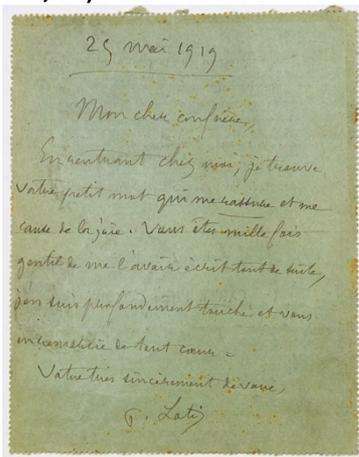 25 mai 1919
Mon cher confrère,
En rentrant chez moi, je trouve
votre petit mot qui me rassure et me
cause de la joie. Vous êtes mille fois
gentil de me l'avoir écrit tout de suite,
j'en suis profondément touché et vous
en remercie de tout cœur =
Votre très sincèrement dévoué,
P. Loti